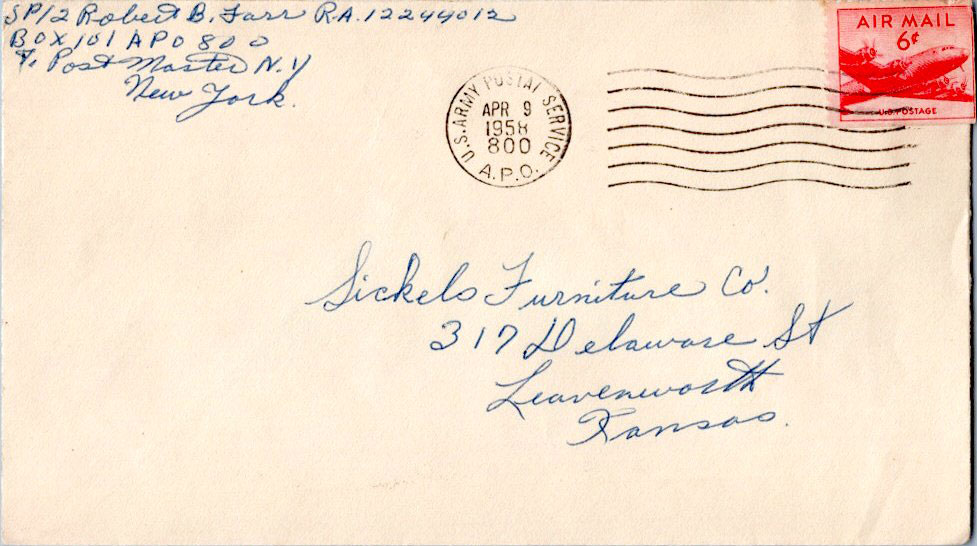 SP/2 Robert B. Farr R.A. 12244012
BOX 101 APO 800
% Post Master N.Y
New York.
U.S. ARMY POSTAL SERVICE
APR 9
1958
800
A.P.O.
AIR MAIL
6¢
U.S. POSTAGE
Sickels Furniture Co.
317 Delaware St
Leavenworth
Kansas.